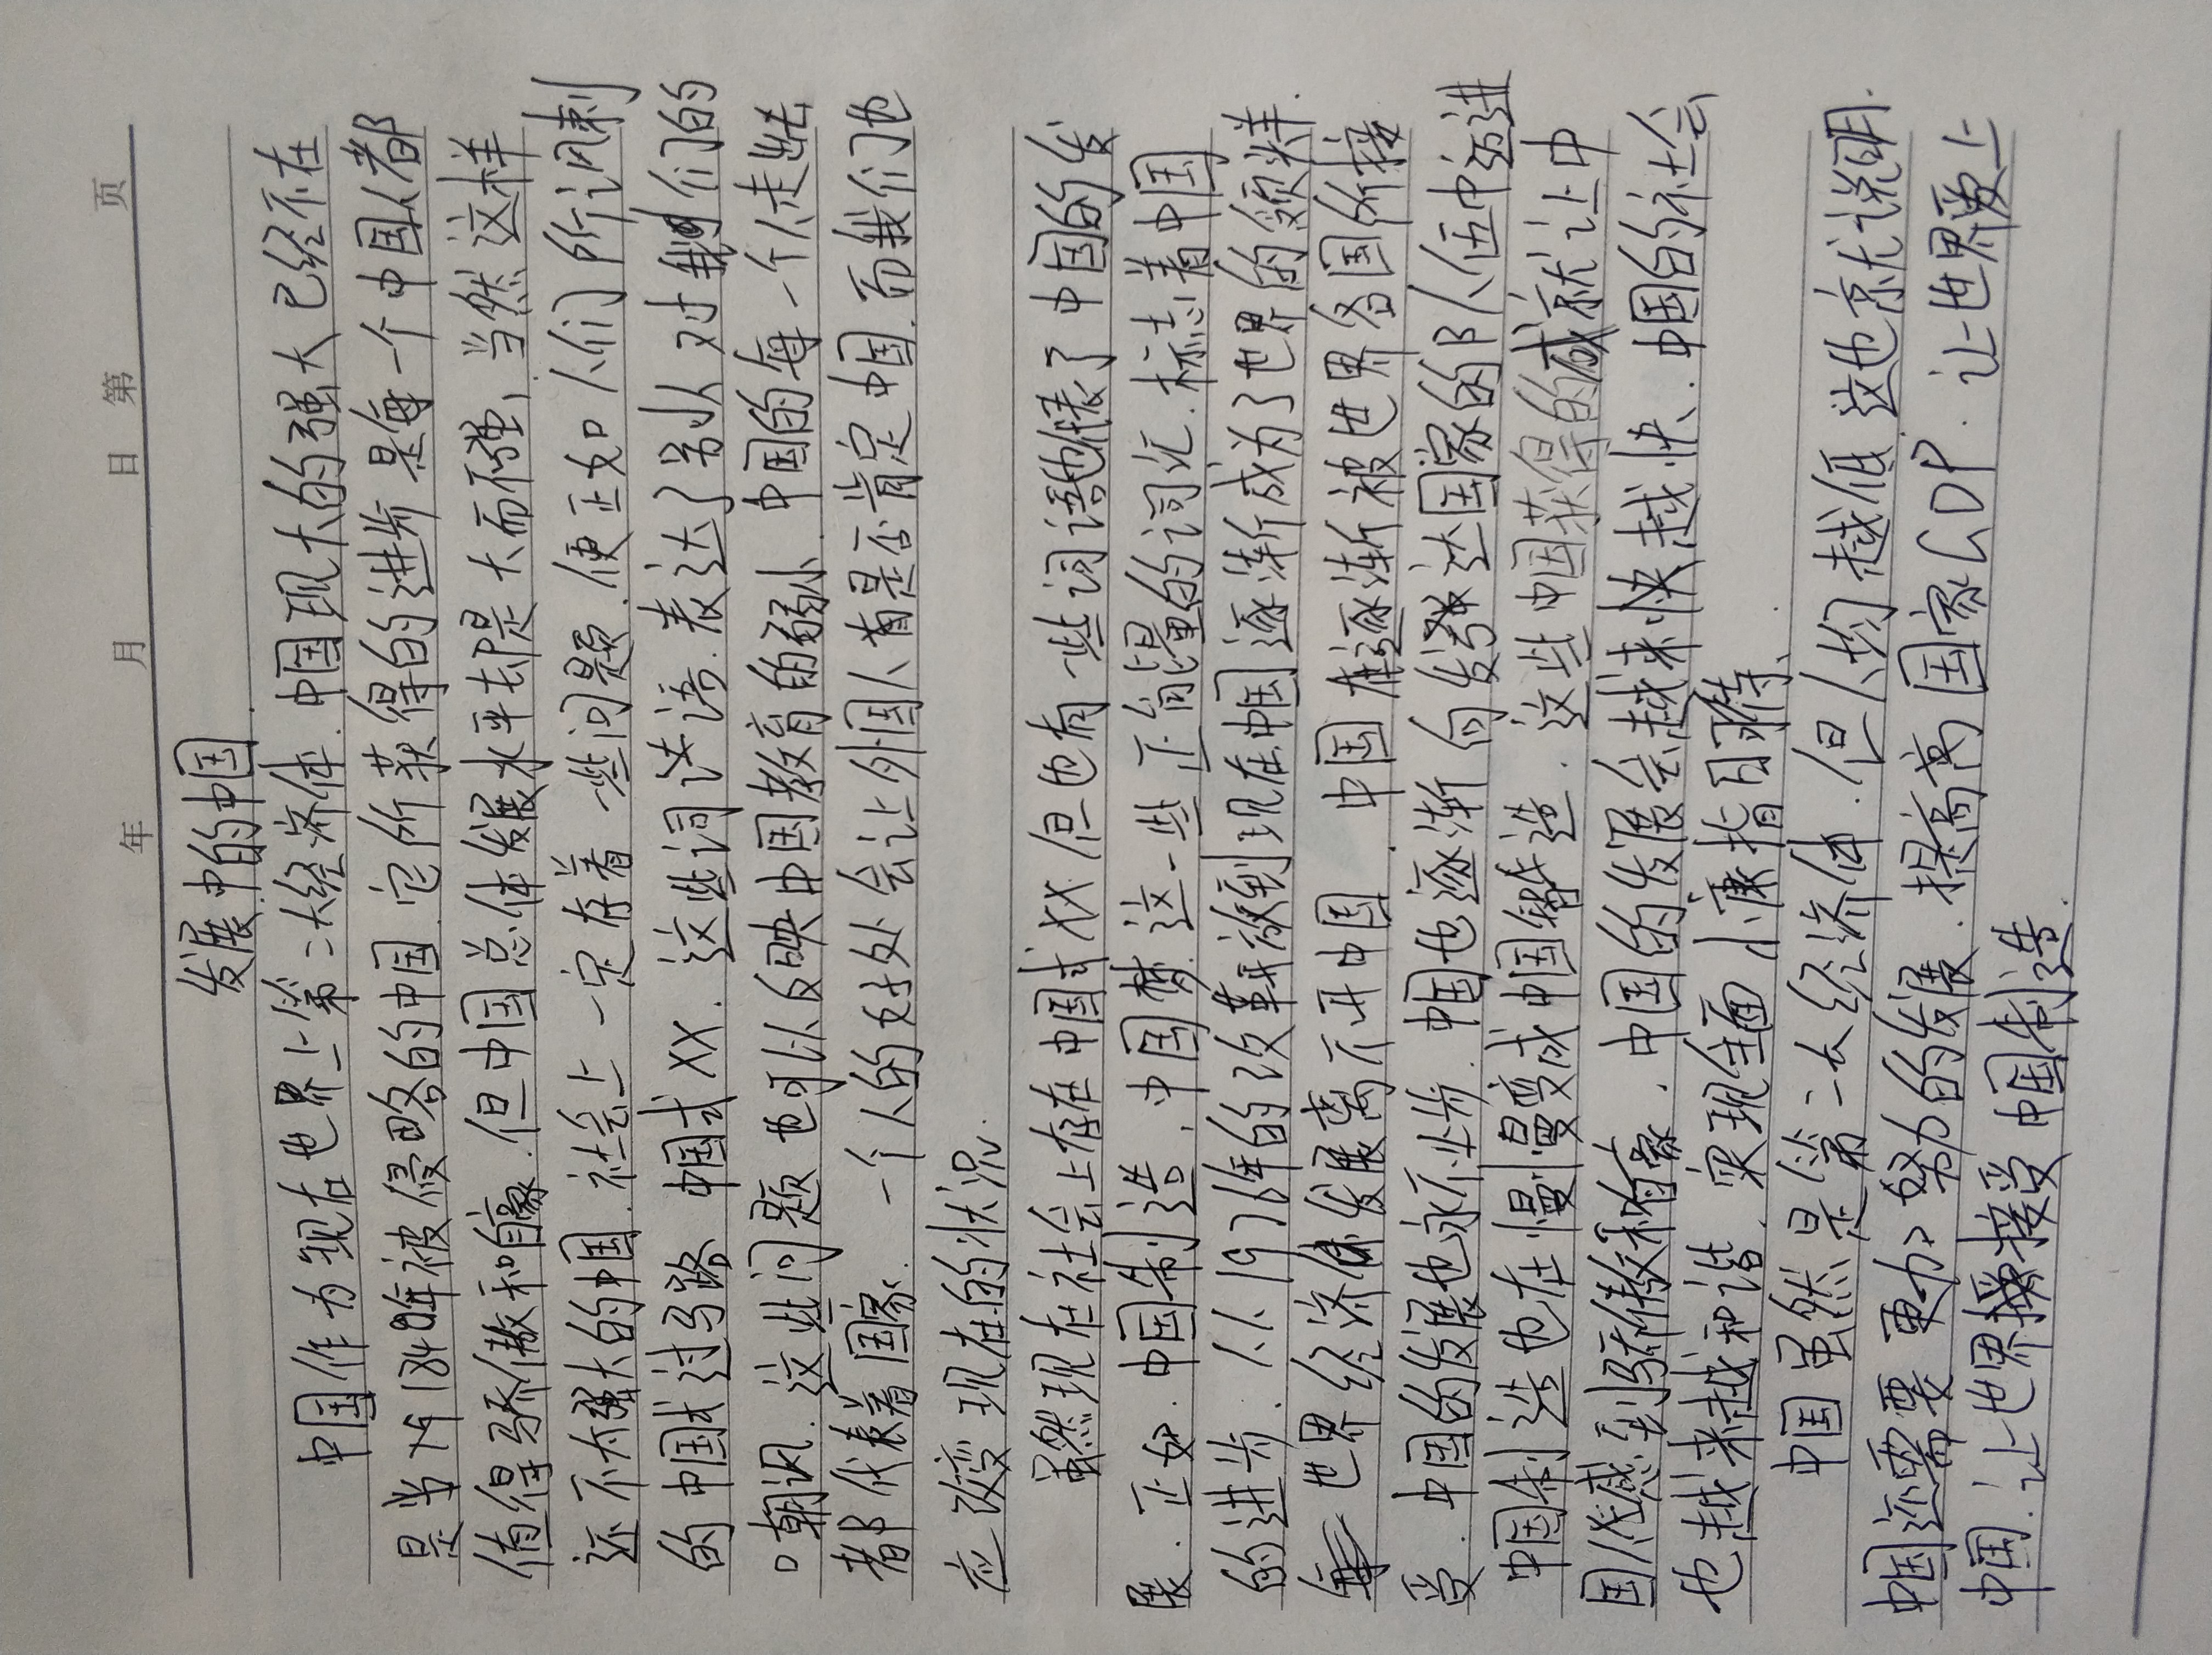 年 月 日 第 页
发展中的中国
中国作为现在世界上第二大经济体.中国现大的强大已经不在
是当1840年被侵略的中国.它所获得的进步是每一个中国人都
值得骄傲和自豪.但中国总体发展水平却是大而不强、当然这样
还不太强大的中国.社会上一定存着一些问题.便正如人们所讽刺
的中国式过马路 中国式XX.这些词汇语.表达了别人对我们的
嘲讽.这些问题也可以反映中国教育的弱小.中国的每一个人走出去
都代表着国家.一个人的好处会让外国人着是否肯定中国.而我们也
应改变现在的状况.
虽然现在社会上存在中国式XX.但也有一些词语代表了中国的发
展.正如.中国制造.中国梦.这一些正能量的词汇.标志着中国
的进步.从1978年的改革开放到现在中国逐渐成为了世界的领头羊.
世界经济体发展离不开中国.中国在逐渐被世界各国所接
受.中国的发展也永不止步.中国也逐渐向发达国家的队伍中迈进
中国制造也在慢慢变成中国智造.这些中国获得的成就让中
国人感到骄傲和自豪.中国的发展会越来快越快、中国的社会
也越来越和谐.实现全面小康指日可待、
中国虽然是第二大经济体.但人均越低这也就说明.
中国还需要更加努力的发展.提高国家GDP.让世界爱上
中国.让世界接受中国制造.